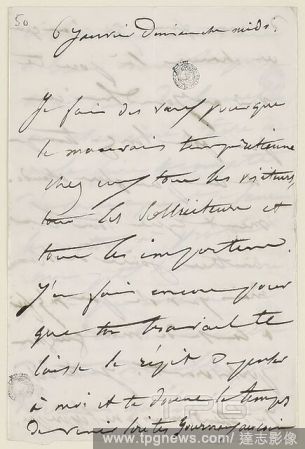 50
6 janvier Dimanche midi.
Je fais des vœux pour que
le mauvais temps retienne
chez eux tous les visiteurs,
tous les solliciteurs et
tous les importuns.
J'en fais encore pour
que ton travail te
laisse le répit de penser
à moi et te donne le temps
de venir lire tes journaux
TPG
www.tpgnews.com / 達志影像